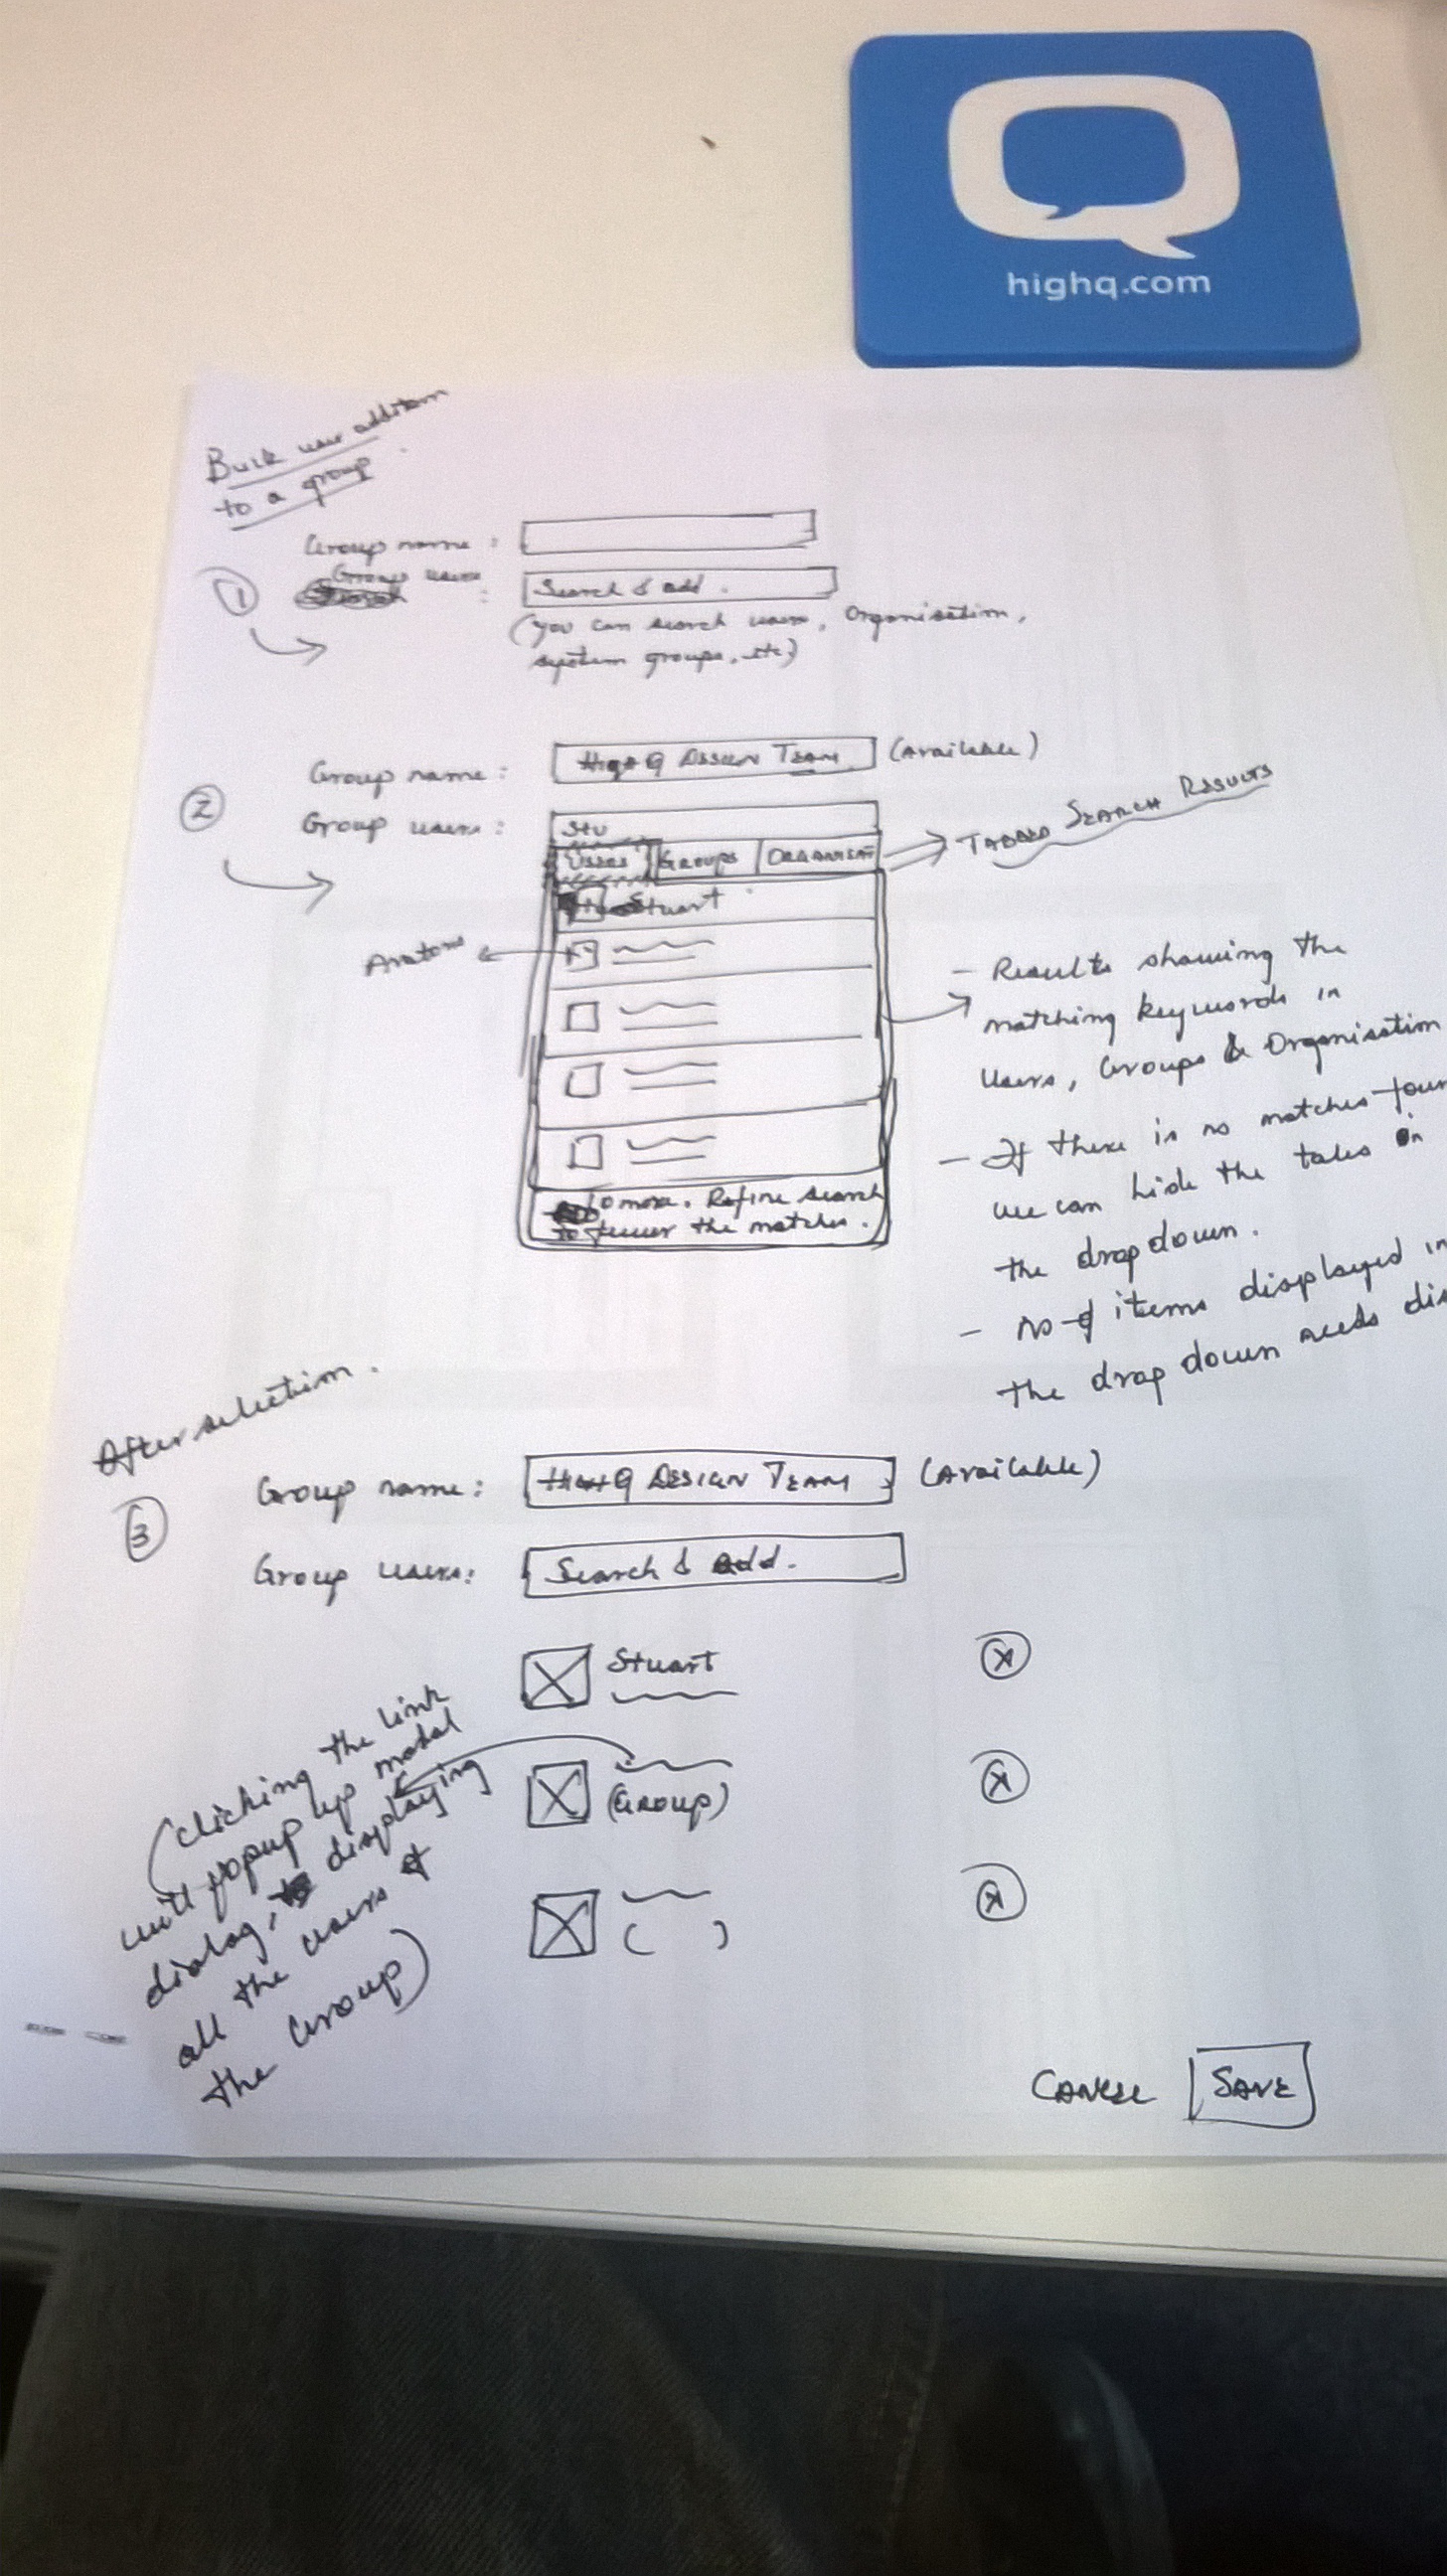 highq.com
Bulk user addition
to a group.
Group name :
1
Group users :
Search & add.
(you can search users, Organisation,
system groups, etc)
2
Group name :
HighQ DESIGN TEAM
(Available)
Group users :
Stu
USERS
GROUPS
ORGANISAT
TABBED SEARCH RESULTS
Stuart
Avatars
- Results showing the
matching keywords in
Users, Groups & Organisation
- If there is no matches foun
we can hide the tabs in
the dropdown.
- No of items displayed in
the drop down needs dis
10 more. Refine search
to fewer the matches.
After selection.
3
Group name :
HighQ DESIGN TEAM
(Available)
Group users :
Search & add.
Stuart
x
(GROUP)
x
( )
x
(Clicking the link
will popup up modal
dialog, displaying
all the users of
the Group)
CANCEL
SAVE